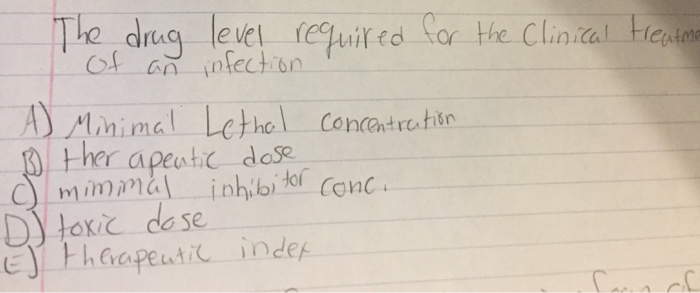 The drug level required for the Clinical treatme
Of an infection
A) Minimal Lethal concentration
B) therapeutic dose
C) minimal inhibitor conc.
D) toxic dose
E) therapeutic index